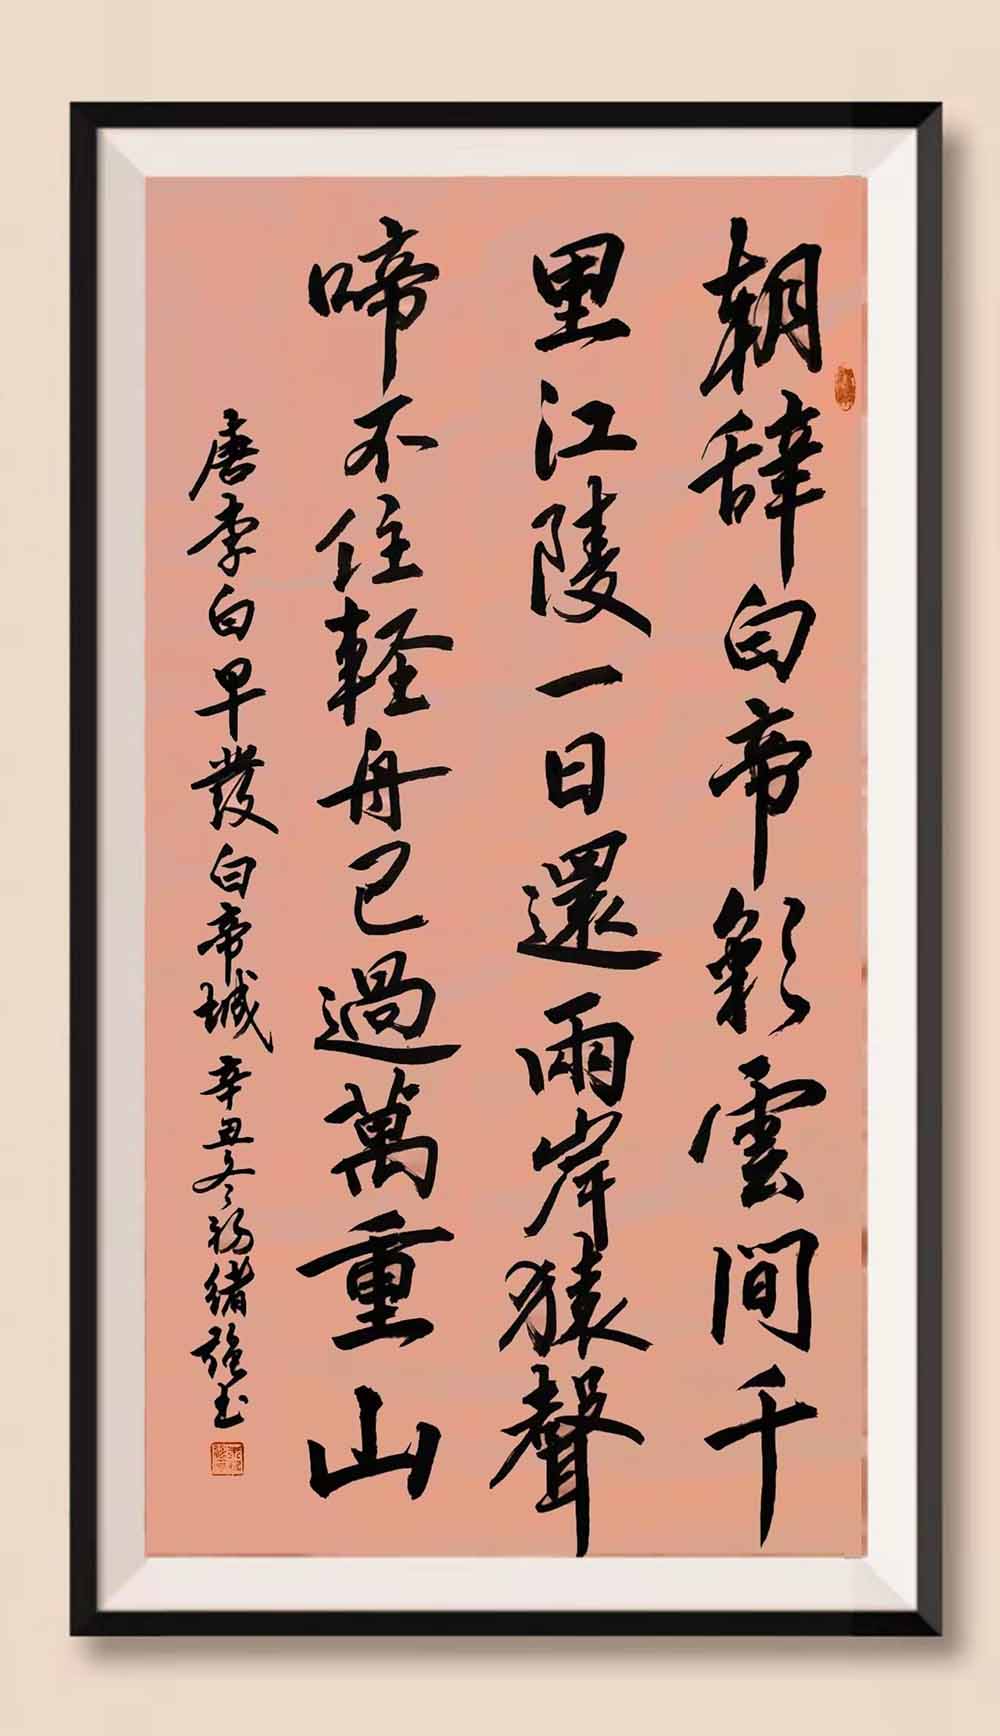 朝辞白帝彩雲間千
里江陵一日還兩岸猿聲
啼不住軽舟已過萬重山
唐李白早發白帝城辛丑冬楊緒強书